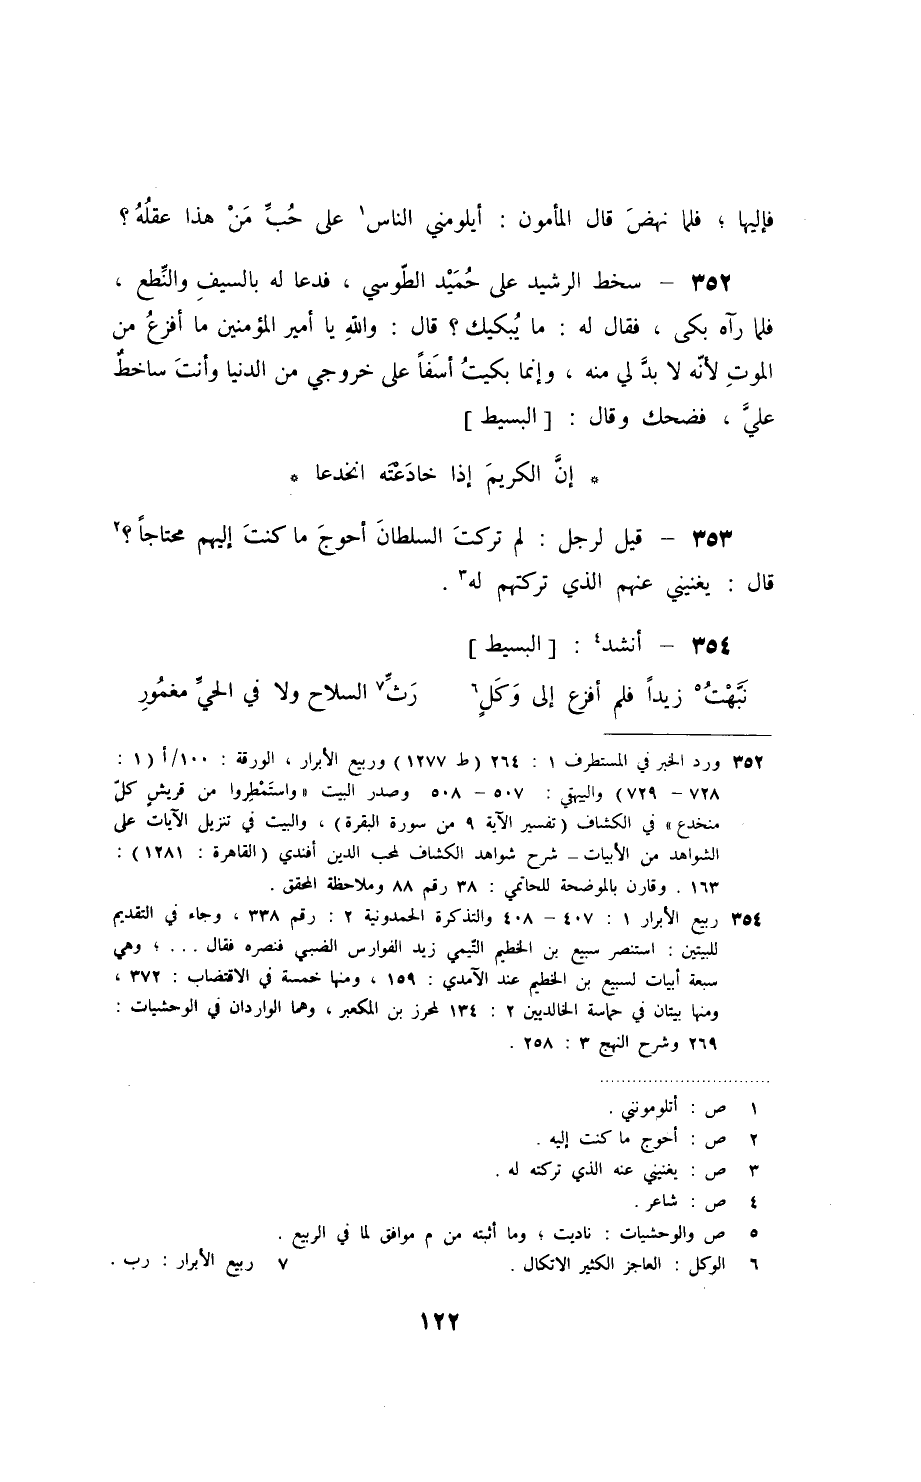 فإليها ؛ فلما نهضَ قال المأمون : أيلومني الناس١ على حُبِّ مَنْ هذا عقلُهُ ؟
٣٥٢ – سخط الرشيد على حُمَيْد الطّوسي ، فدعا له بالسيفِ والنِّطع ،
فلما رآه بكى ، فقال له : ما يُبكيك ؟ قال : واللهِ يا أمير المؤمنين ما أفزعُ من
الموتِ لأنّه لا بدَّ لي منه ، وإنما بكيتُ أسَفاً على خروجي من الدنيا وأنتَ ساخطٌ
عليَّ ، فضحك وقال : [ البسيط ]
* إنَّ الكريمَ إذا خادَعْتَه انخدعا *
٣٥٣ – قيل لرجل : لم تركتَ السلطانَ أحوجَ ما كنتَ إليهم محتاجاً ؟٢
قال : يغنيني عنهم الذي تركتهم له٣ .
٣٥٤ – أنشد٤ : [ البسيط ]
نَبَّهْتُ٥ زيداً فلم أفزع إلى وَكَلٍ٦ رَثِّ٧ السلاح ولا في الحيِّ مغمُورِ
٣٥٢ ورد الخبر في المستطرف ١ : ٢٦٤ (ط ١٢٧٧) وربيع الأبرار ، الورقة : ١٠٠/أ (١ :
٧٢٨ – ٧٢٩) والبيهقي : ٥٠٧ – ٥٠٨ وصدر البيت «واستَمْطِروا من قريشٍ كلّ
منخدع» في الكشاف (تفسير الآية ٩ من سورة البقرة) ، والبيت في تنزيل الآيات على
الشواهد من الأبيات – شرح شواهد الكشاف لمحب الدين أفندي (القاهرة : ١٢٨١) :
١٦٣ . وقارن بالموضحة للحاتمي : ٣٨ رقم ٨٨ وملاحظة المحقق .
٣٥٤ ربيع الأبرار ١ : ٤٠٧ – ٤٠٨ والتذكرة الحمدونية ٢ : رقم ٣٣٨ ، وجاء في التقديم
للبيتين : استنصر سبيع بن الخطيم التّيمي زيد الفوارس الضبي فنصره فقال . . . ؛ وهي
سبعة أبيات لسبيع بن الخطيم عند الآمدي : ١٥٩ ، ومنها خمسة في الاقتضاب : ٣٧٢ ،
ومنها بيتان في حماسة الخالديين ٢ : ١٣٤ لمحرز بن المكعبر ، وهما الواردان في الوحشيات :
٢٦٩ وشرح النهج ٣ : ٢٥٨ .
١ ص : أتلومونني .
٢ ص : أحوج ما كنت إليه .
٣ ص : يغنيني عنه الذي تركته له .
٤ ص : شاعر .
٥ ص والوحشيات : ناديت ؛ وما أثبته من م موافق لما في الربيع .
٦ الوكل : العاجز الكثير الاتكال . ٧ ربيع الأبرار : رب .
١٢٢